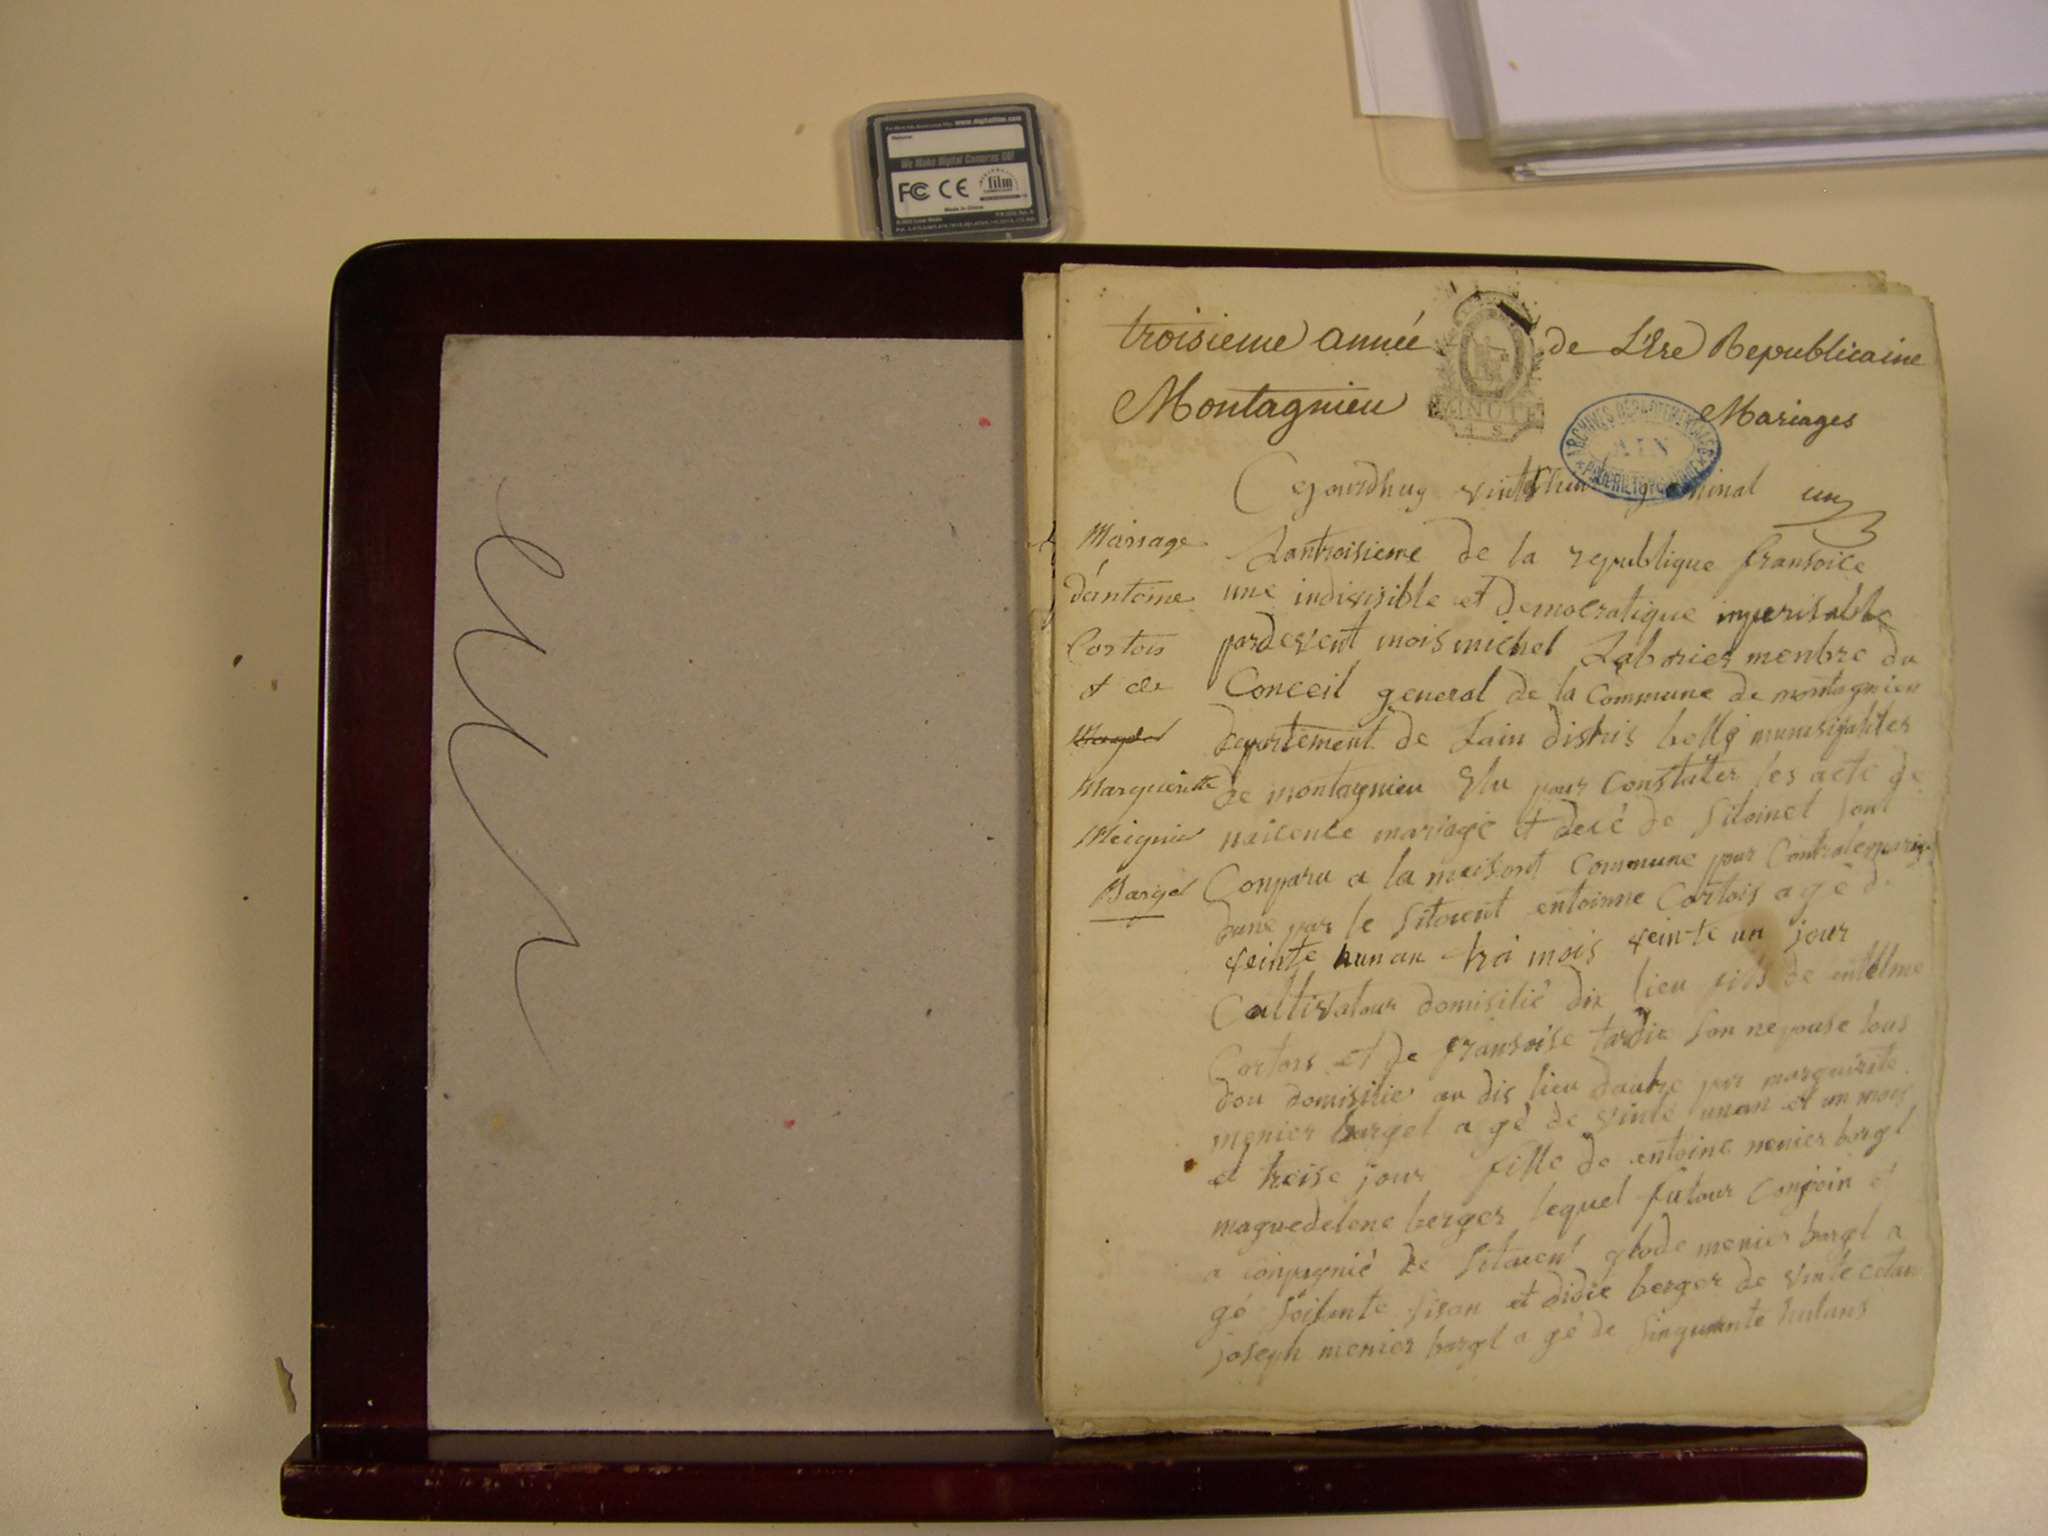 www.digitalfilm.com
We Make Digital Cameras Go!
FC CE film
Made in China
troisieme année de L'Ere Republicaine
Montagnieu Mariages
MINUTE
4 S
ARCHIVES DEPARTEMENTALES
AIN
Mariage
d'antoine
Cortois
et de
Margueritte
Meignié
Bargel
Cejourdhuy vintehui germinal
Lantroisieme de la republique fransoice
une indivisible et democratique inperisable
pardevent mois michel Labories menbre du
Conceil general de la Commune de montagnieu
departement de Lain distris belley munisipalites
de montagnieu Elu pour Constater les acte de
naicence mariage et decé de Sitoinet sont
Conparu a la maisont Commune pour Contralemariage
dune par le Sitoient entoinne Cortois agé de
veinte hun an troi mois veinte un jour
Cultivatour domisilié dix lieu fils de entelme
Cortois et de fransoise tardie son nepouse tous
dou domisilie au dis lieu dautre par marguirite
menier bargel a gé de vinte unan et un mois
et treise jour fille de entoine menier bargl
maguedelene berger lequel futour Conjoin et
a conpagnié de Sitoient glode menier bargl a
gé soisante sisan et didie berger de vinte cetan
joseph menier bargl a gé de sinquante hutans